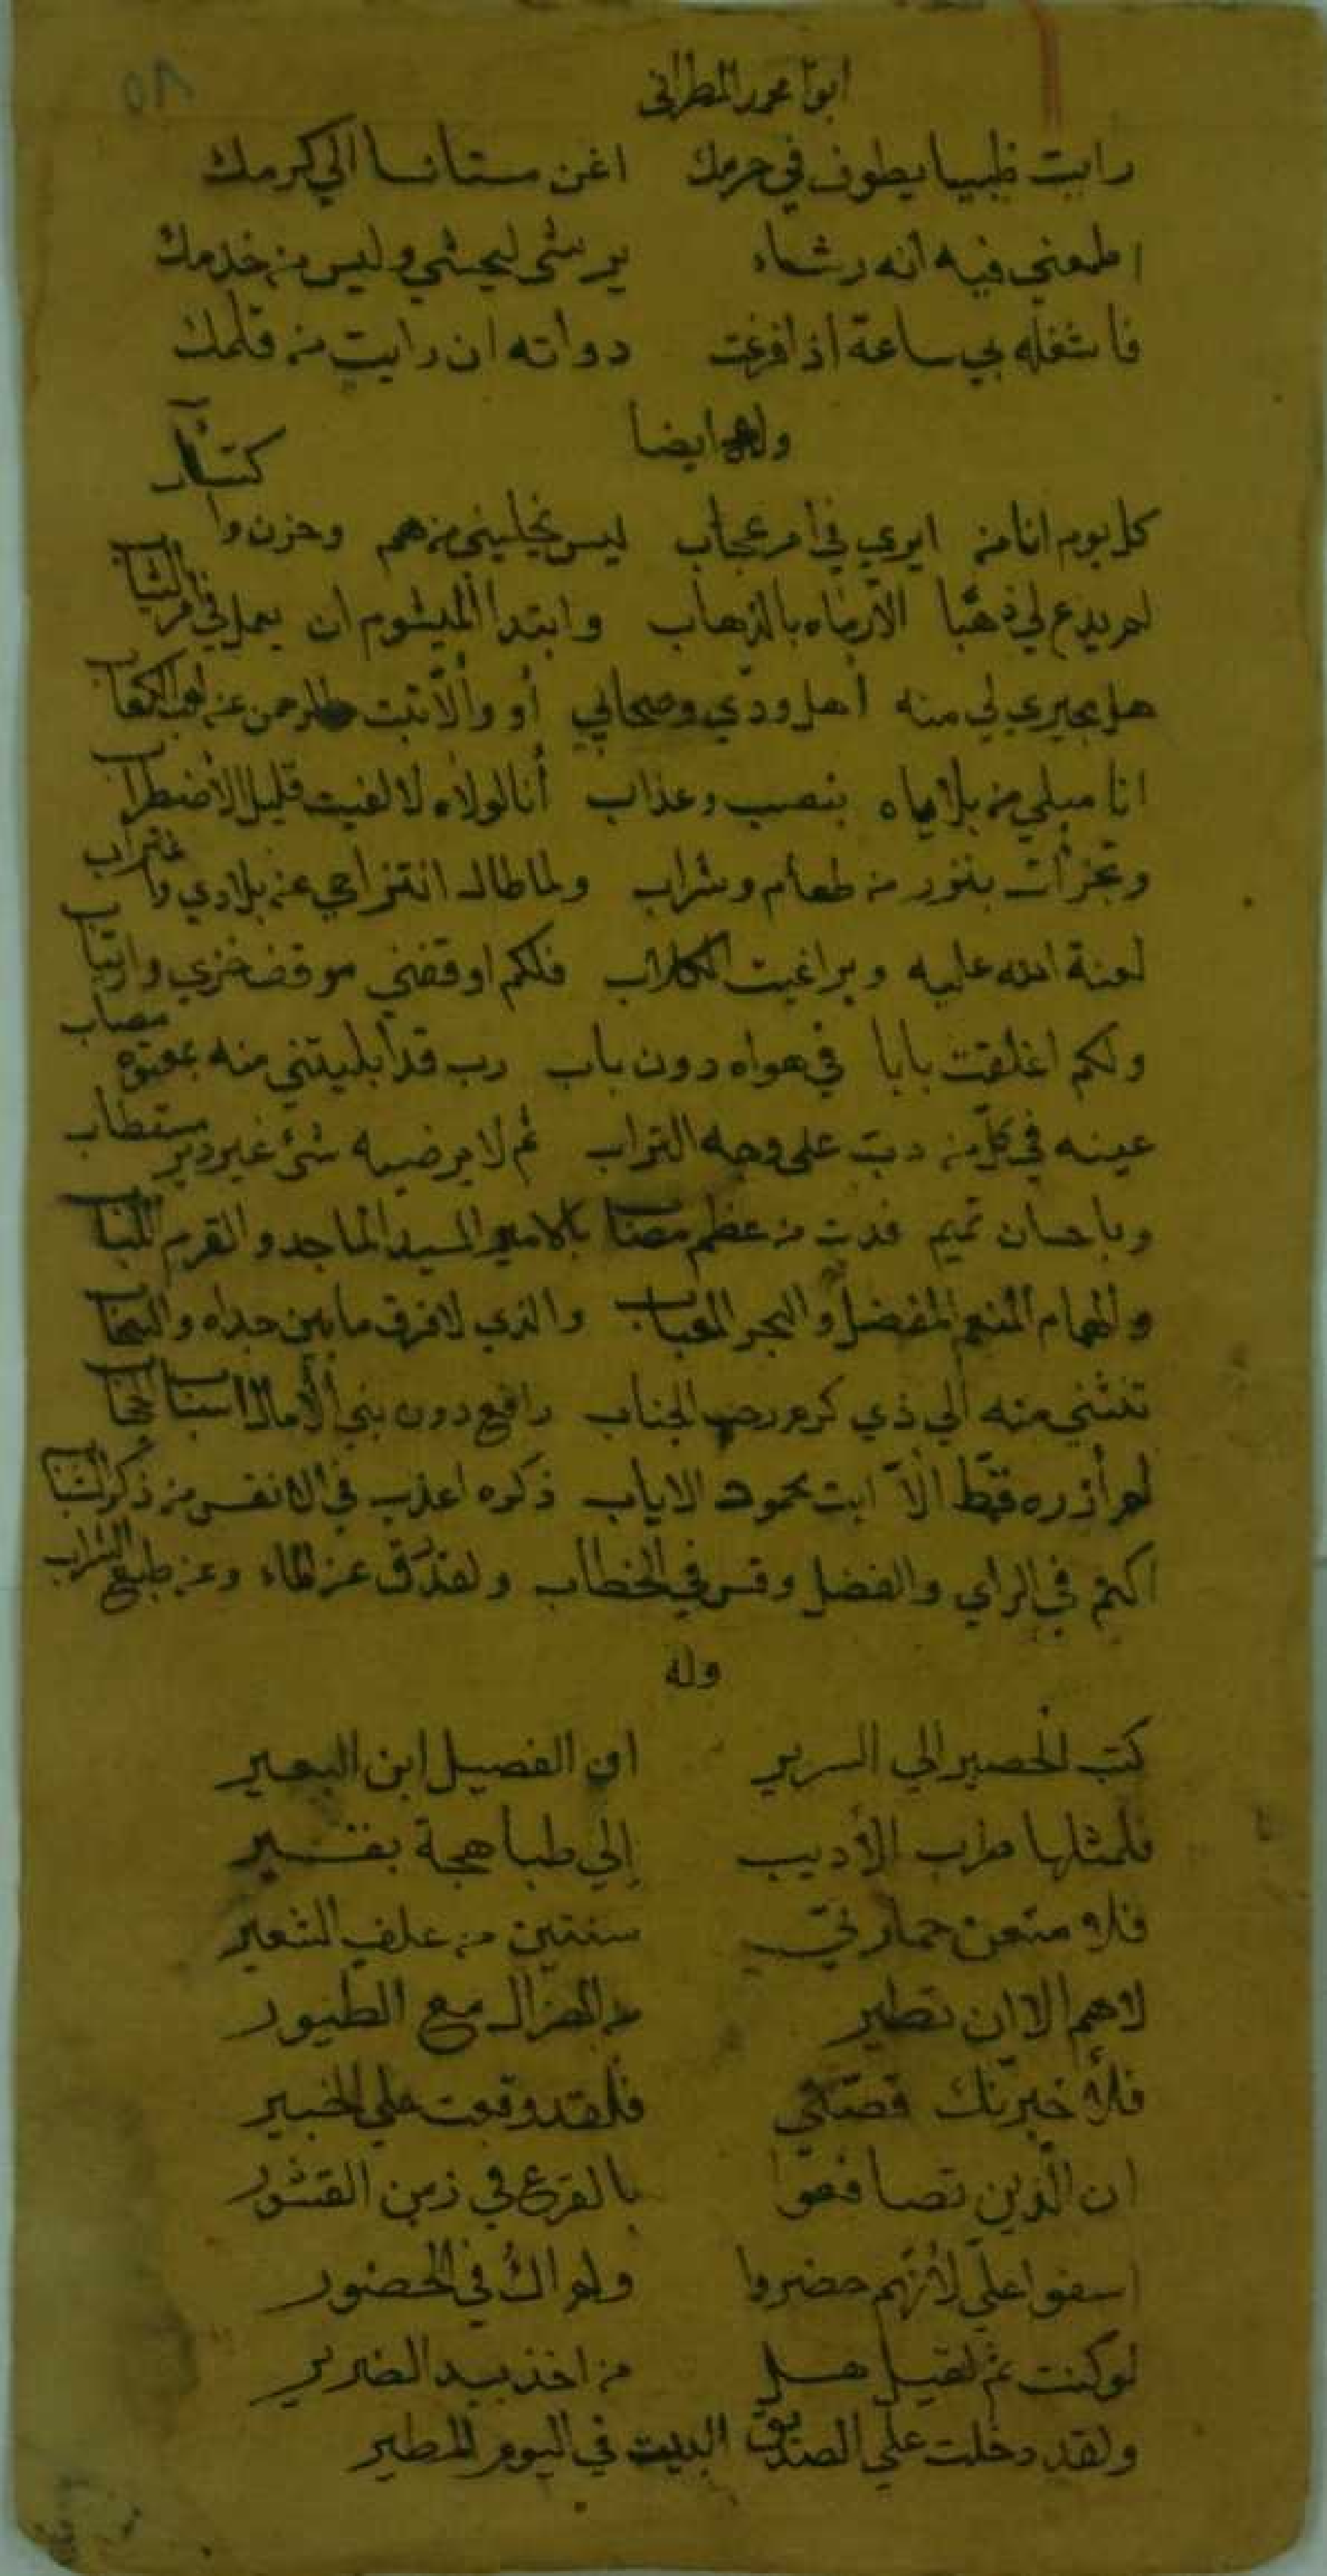 ٥٨
ابو محمد المطراني
رايت ظبيا يطوف في حرمك اغن مستانسا الي كرمك
اطمعني فيه انه رشاء يرشي ليحشي وليس من خدمك
فاشغله بي ساعة اذا فرغت دواته ان رايت من قلمك
وله ايضا
كل يوم انا من ايري في امر عجاب ليس يخليني من هم وحزن واكتئاب
لم يدع لي ذهبا الا رماه بالذهاب وابتدا الميشوم ان يعمل في امر الثياب
هل مجيري لي منه أهل ودي وصحابي أو والا تبت للرحمن عن لعب الكعاب
انا مبلي من بلاياه بنصب وعذاب أنا لولاه لالفيت قليل الاضطراب
وتجزأت بنزر من طعام وشراب ولما طال انتزاحي عن بلادي واغتراب
لعنة الله عليه وبراغيث الكلاب فلكم اوقفني موقف خزي وارتياب
ولكم اغلقت بابا في هواه دون باب رب قد أبليتني منه بمعتوه مصاب
عينه في كل من دب على وجه التراب ثم لا يرضيه شئ غير دير مستطاب
وباحسان تميم فدت من عظم مصاب بالامير السيد الماجد والقرم اللباب
والهمام المنعم المفضل والبحر العباب والذي لا فرق ما بين جداه والسحاب
تنثني منه الي ذي كرم رحب الجناب رافع دون بني الآمال استار الحجاب
لم أزره قط الا ابت محمود الاياب ذكره اعذب في الانفس من ذكر الشباب
اكثم في الراي والفضل وقس في الخطاب ولقد رق عن الماء وعن طبع الشراب
وله
كتب الحصير الي السرير ان الفصيل ابن البعير
فلمثلها طرب الأديب إلي طباهجة بقير
فلا منعن حمارتي سنتين من علف الشعير
لاهم الا ان تطير من الهزال مع الطيور
فلأخبرنك قصتي فلقد وقعت علي الخبير
ان الذين تصافعوا بالقرع في زمن القشور
اسفوا علي لأنهم حضروا ولم اك في الحضور
لو كنت ثم لقيل هل من اخذ بيد الضرير
ولقد دخلت علي الصديق البيت في اليوم المطير